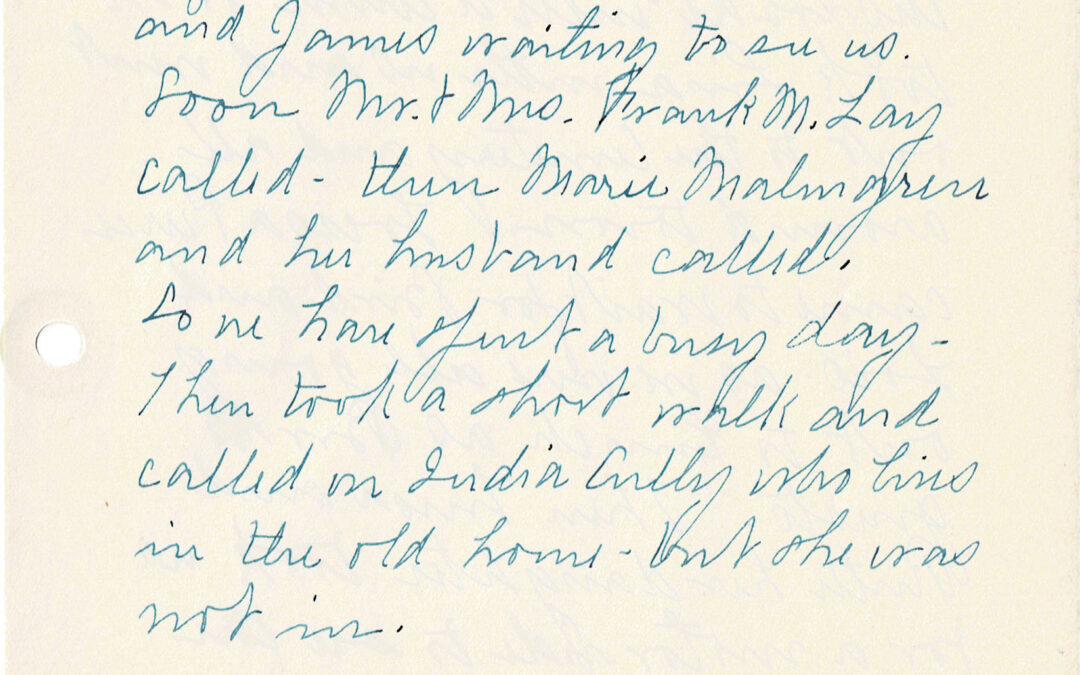 and James waiting to see us.
Soon Mr. & Mrs. Frank M. Lay
called - then Marie Malmgren
and her husband called.
So we have spent a busy day -
Then took a short walk and
called on India Cully who lives
in the old home - but she was
not in.